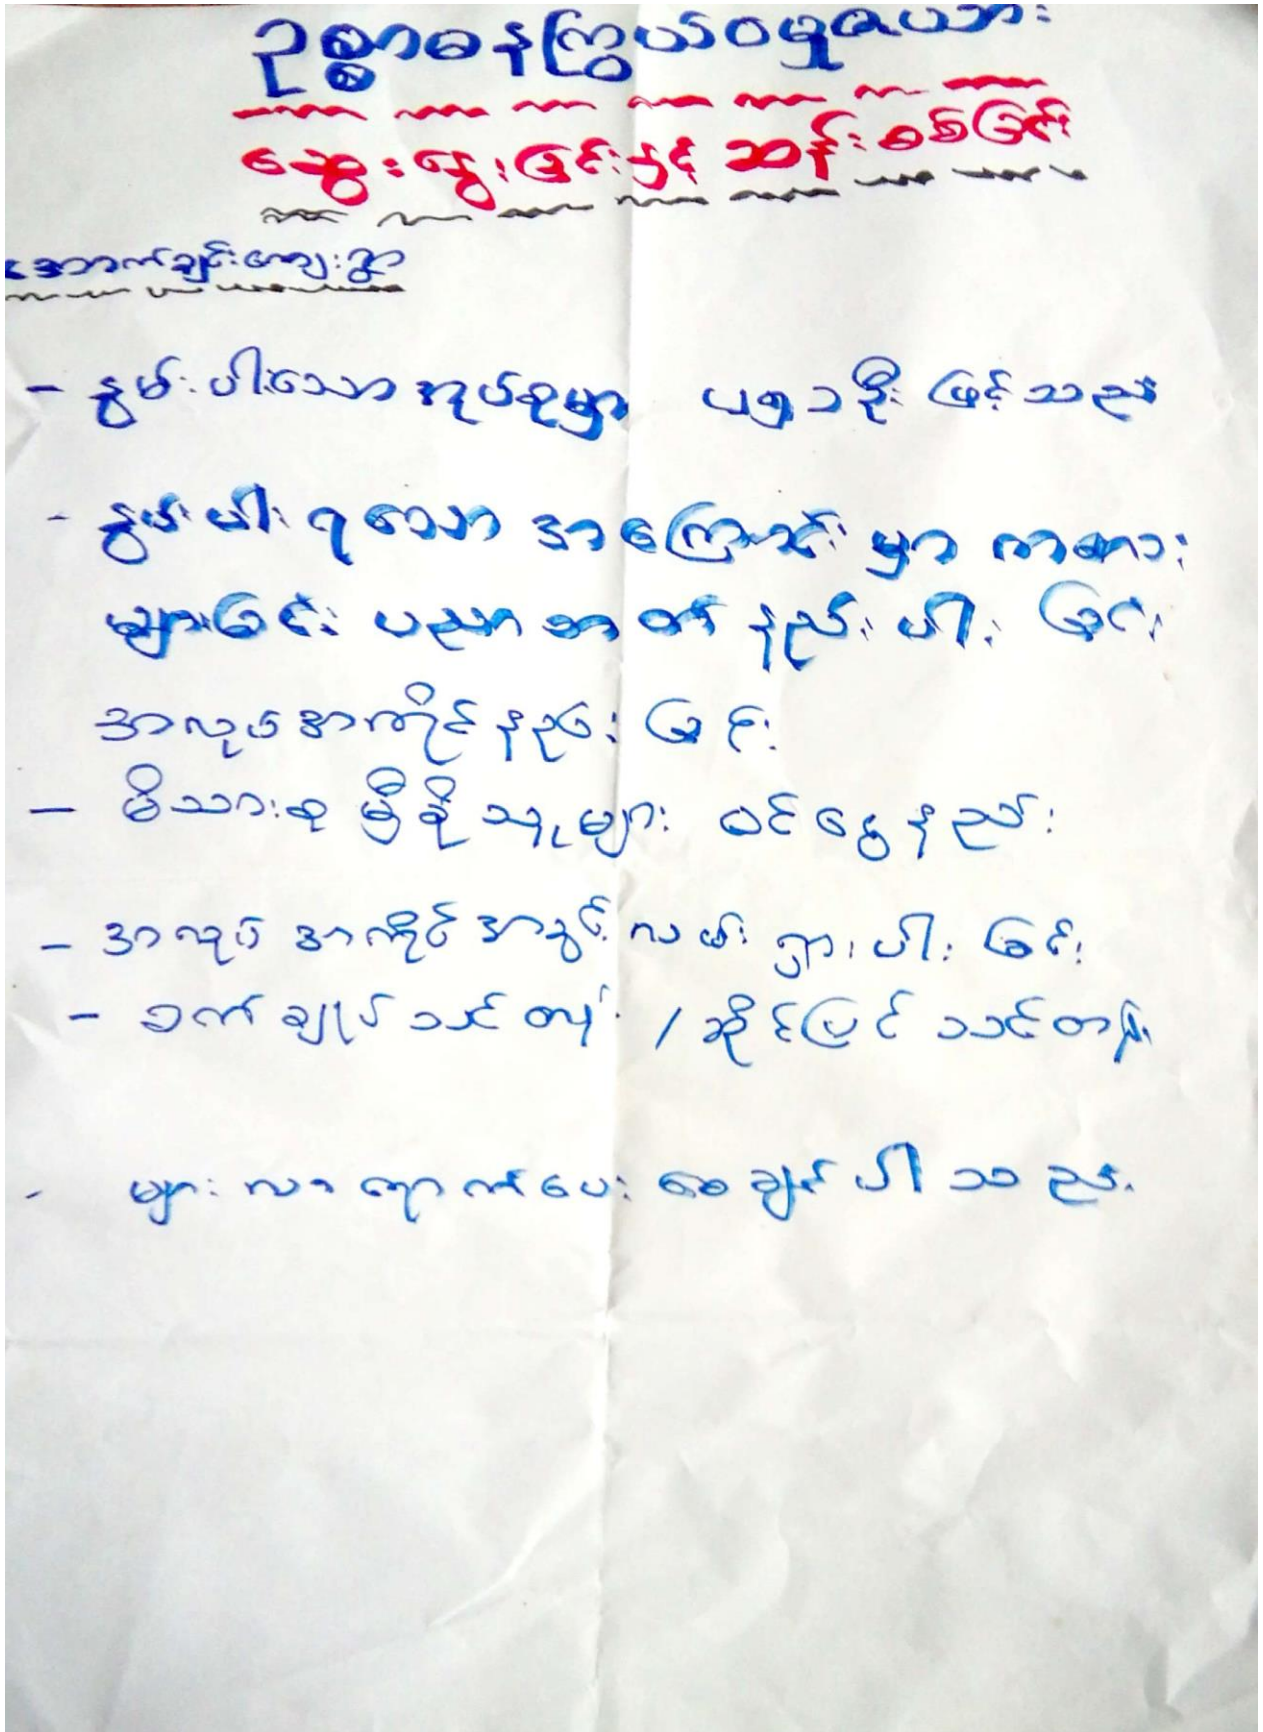 ဥစ္စာဓနကြွယ်ဝမှုဇယား
ဆွေးနွေးခြင်းနှင့် ဆန်းစစ်ခြင်း
အောက်ချင်းကျေးရွာ
- နွမ်းပါးသော အုပ်စုမှာ ပရာဒိုးဖြင့်သည်
- နွမ်းပါးရသော အကြောင်းမှာ ကလေး
များခြင်း ပညာတတ်နည်းပါးခြင်း
အလုပ်အကိုင်နည်းခြင်း
- မိသားစု မှီခိုသူများ ဝင်ငွေနည်း
- အလုပ်အကိုင်အခွင့်လမ်းရှားပါးခြင်း
- စက်ချုပ်သင်တန်း / ဆိုင်ပြင်သင်တန်း
- များလာရောက်ပေးစေချင်ပါသည်.